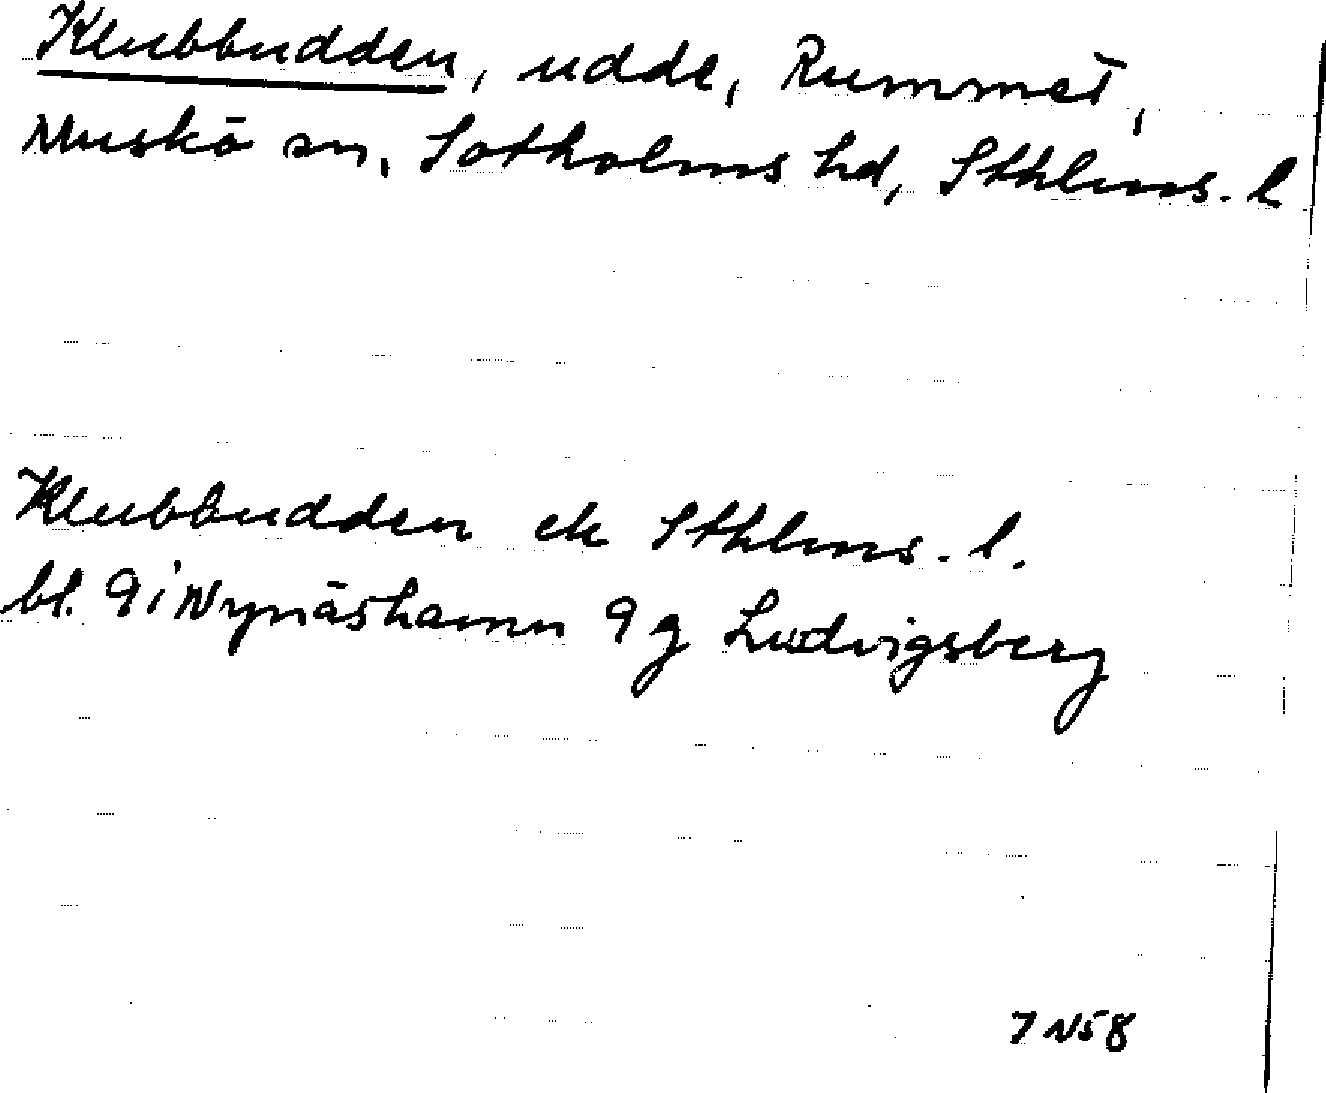 Klubbudden, udde, Rummet,
Muskö sn, Sotholms hd, Sthlms. l
Klubbudden ek Sthlms. l.
bl. 9i Nynäshamn 9g Ludvigsberg
7 N58